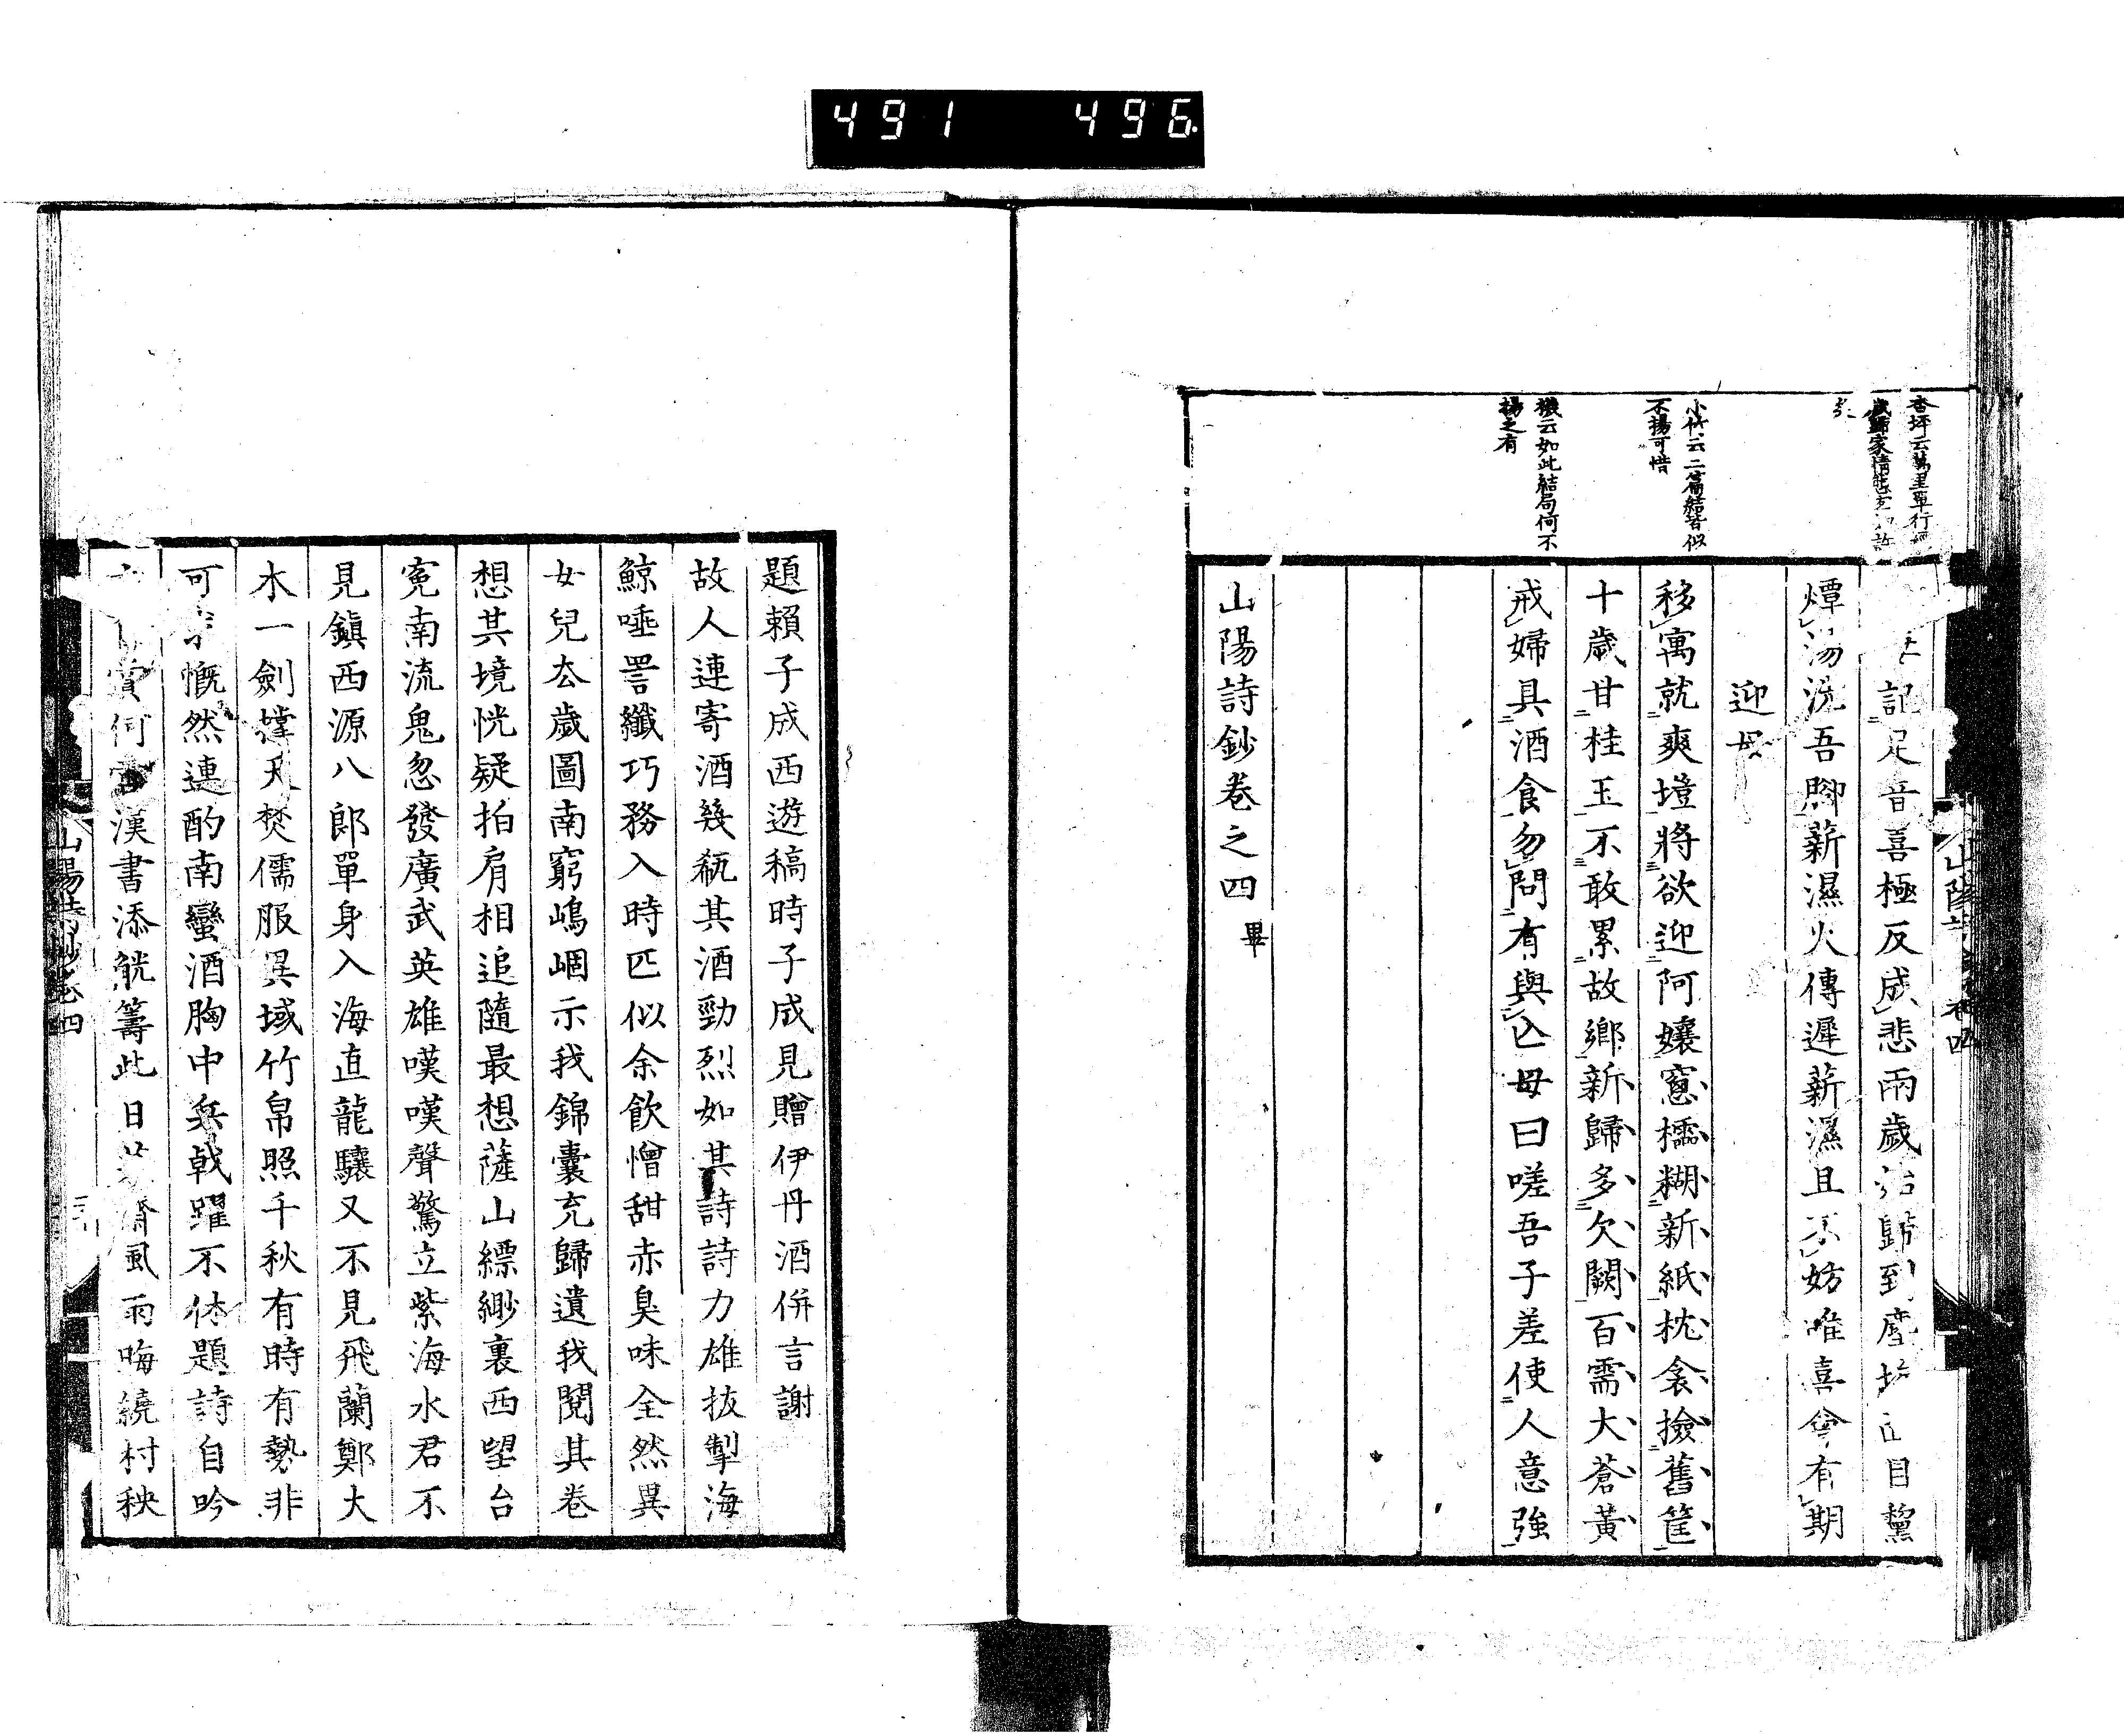 491 496
杏坪云萬里單行
歲歸家情態
小竹云二篇結皆似
不揚可惜
襄云如此結局何不
揚之有
記足音喜極反成悲兩歲始歸到 目黧
燂湯洗吾脚薪濕火傳遲薪濕且不妨唯喜會有期
迎母
移寓就爽塏將欲迎阿孃窓櫺糊新紙枕衾撿舊筐
十歲甘桂玉不敢累故鄉新歸多欠闕百需大蒼黃
戒婦具酒食勿問有與亡母曰嗟吾子差使人意強
山陽詩鈔卷之四 畢
題賴子成西遊稿時子成見贈伊丹酒併言謝
故人連寄酒幾瓻其酒勁烈如其詩詩力雄拔掣海
鯨唾罟纖巧務入時匹似余飲憎甜赤臭味全然異
女兒厺歲圖南窮嶋崓示我錦囊充歸遺我閱其卷
想其境恍疑拍肩相追隨最想薩山縹緲裏西望台
寃南流鬼忽發廣武英雄嘆嘆聲驚立紫海水君不
見鎮西源八郎單身入海直龍驤又不見飛蘭鄭大
木一劍撐天焚儒服異域竹帛照千秋有時有勢非
可 慨然連酌南蠻酒胸中兵戟躍不休題詩自吟
賞何啻漢書添觥籌此日 齋風雨晦繞村秧
山陽詩鈔卷四